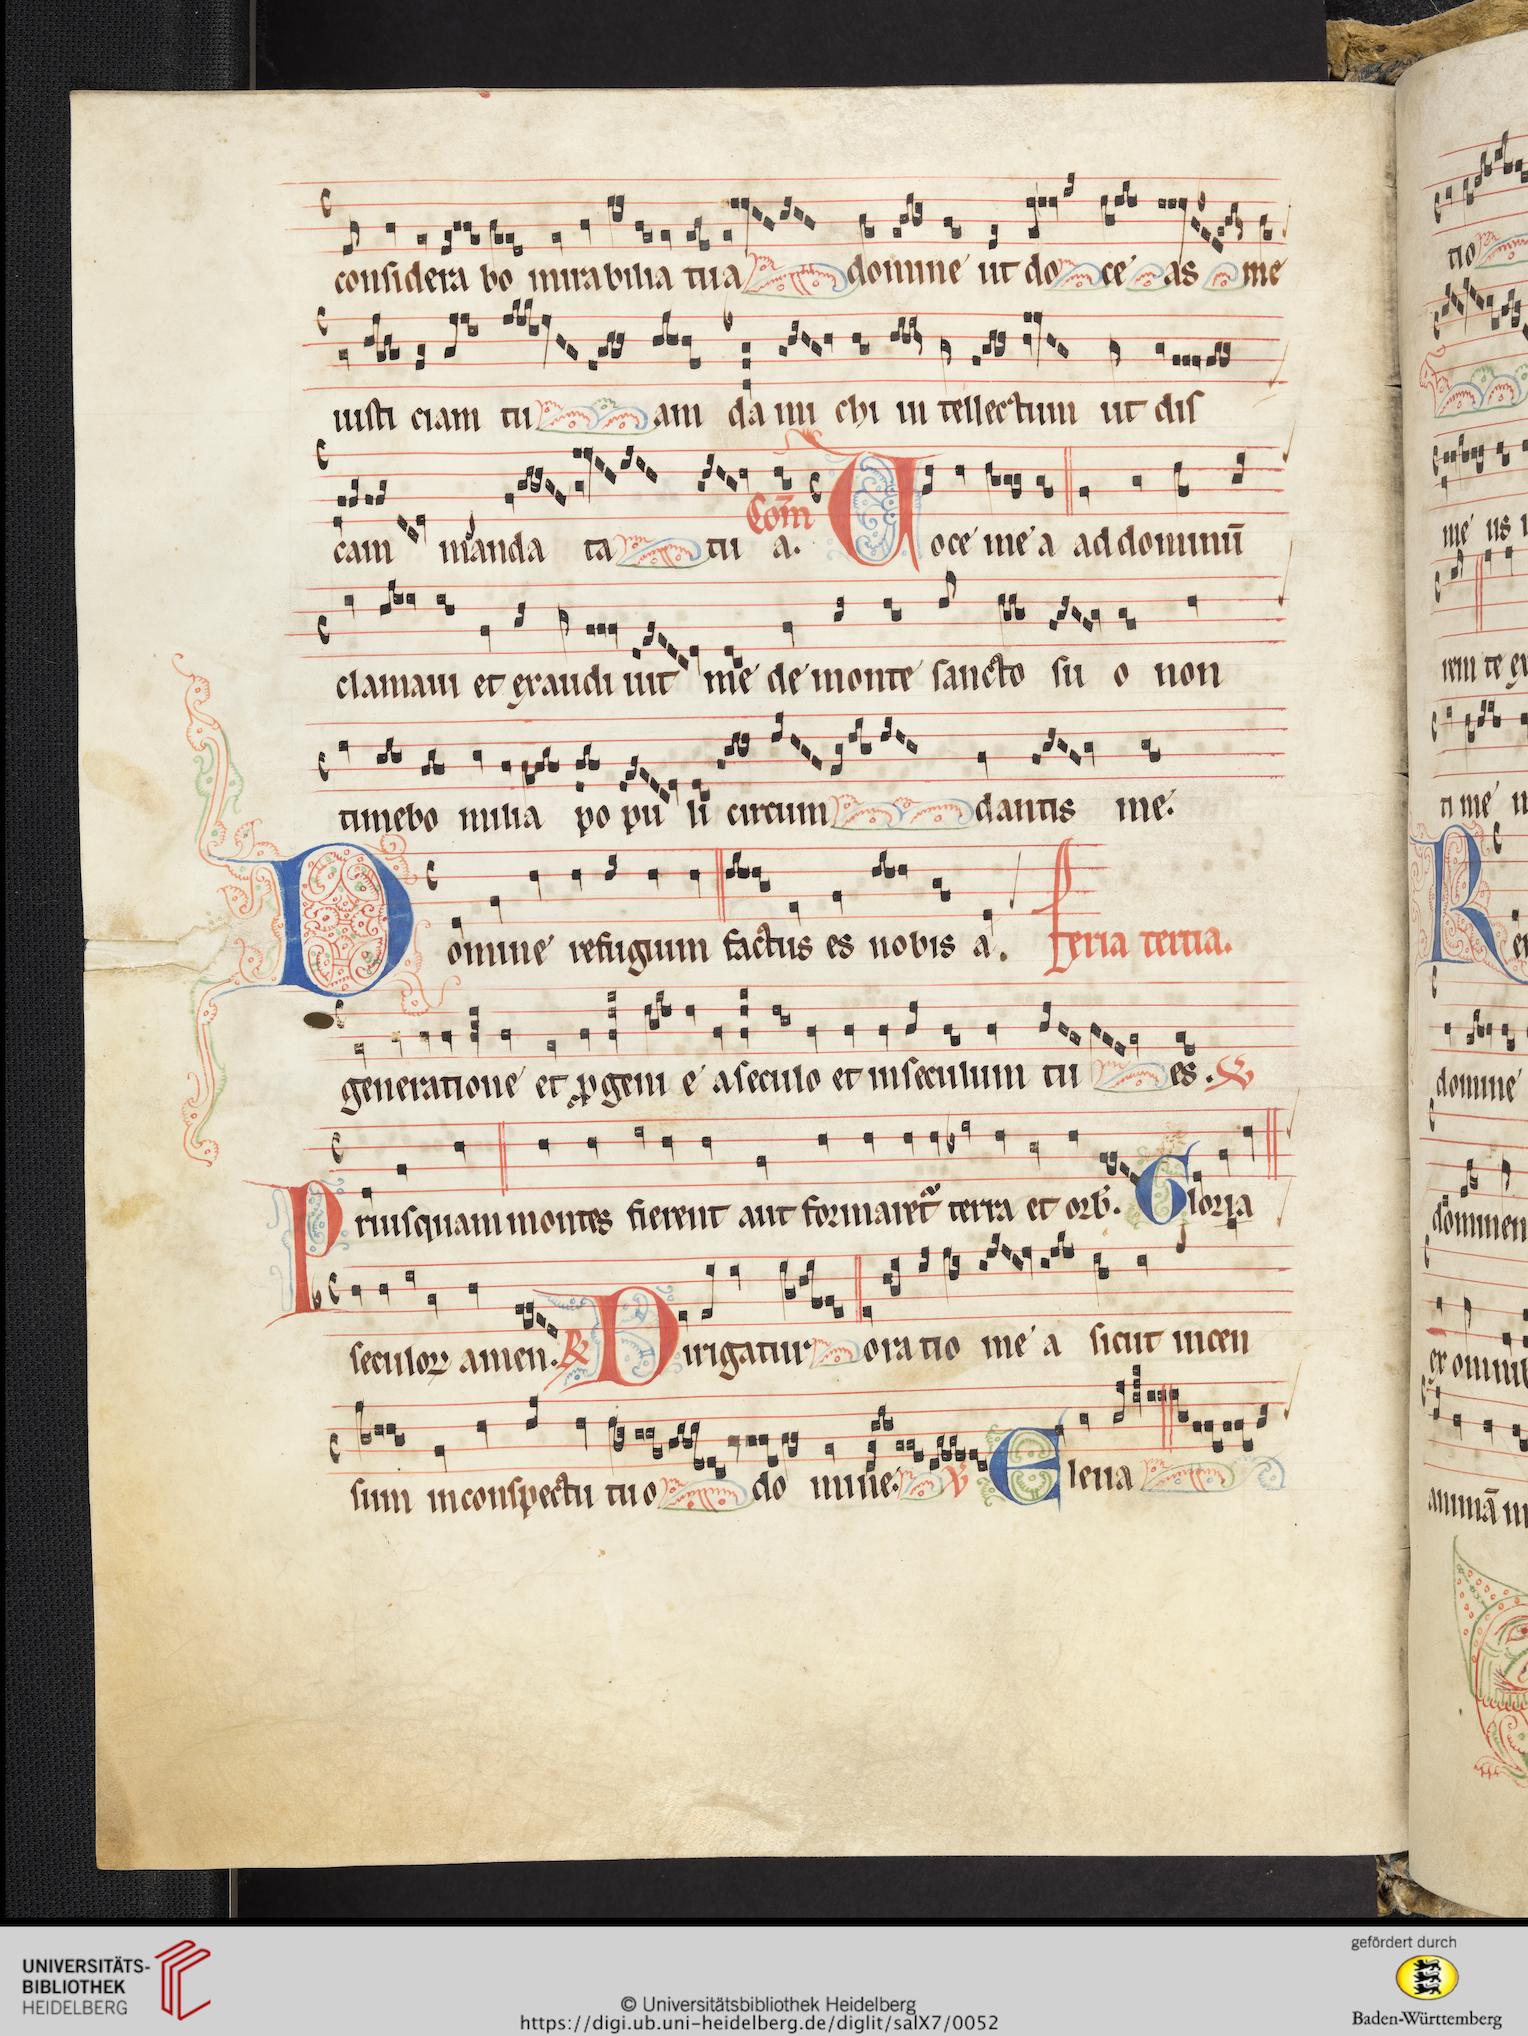 considera bo mirabilia tua domine ut do ce as me
iusti ciam tu am da mi chi in tellectum ut dis
cam manda ta tu a. Com̄ Uoce me a ad dominū
clamaui et exaudi uit me de monte sancto su o non
timebo milia po pu li circum dantis me.
Domine refugium factus es nobis a. Feria tertia.
generatione et ꝓgeni e a seculo et in seculum tu es. ps
Priusquam montes fierent aut formaret᷑ terra et orb. Gloria
seculoꝝ amen. R Dirigatur oratio me a sicut incen
sum in conspectu tuo do mine. V Eleua
tio
me us
rem te ex
ti me
Re
domine
dominen
ex omnib
animā
UNIVERSITÄTS-
BIBLIOTHEK
HEIDELBERG
© Universitätsbibliothek Heidelberg
https://digi.ub.uni-heidelberg.de/diglit/salX7/0052
gefördert durch
Baden-Württemberg